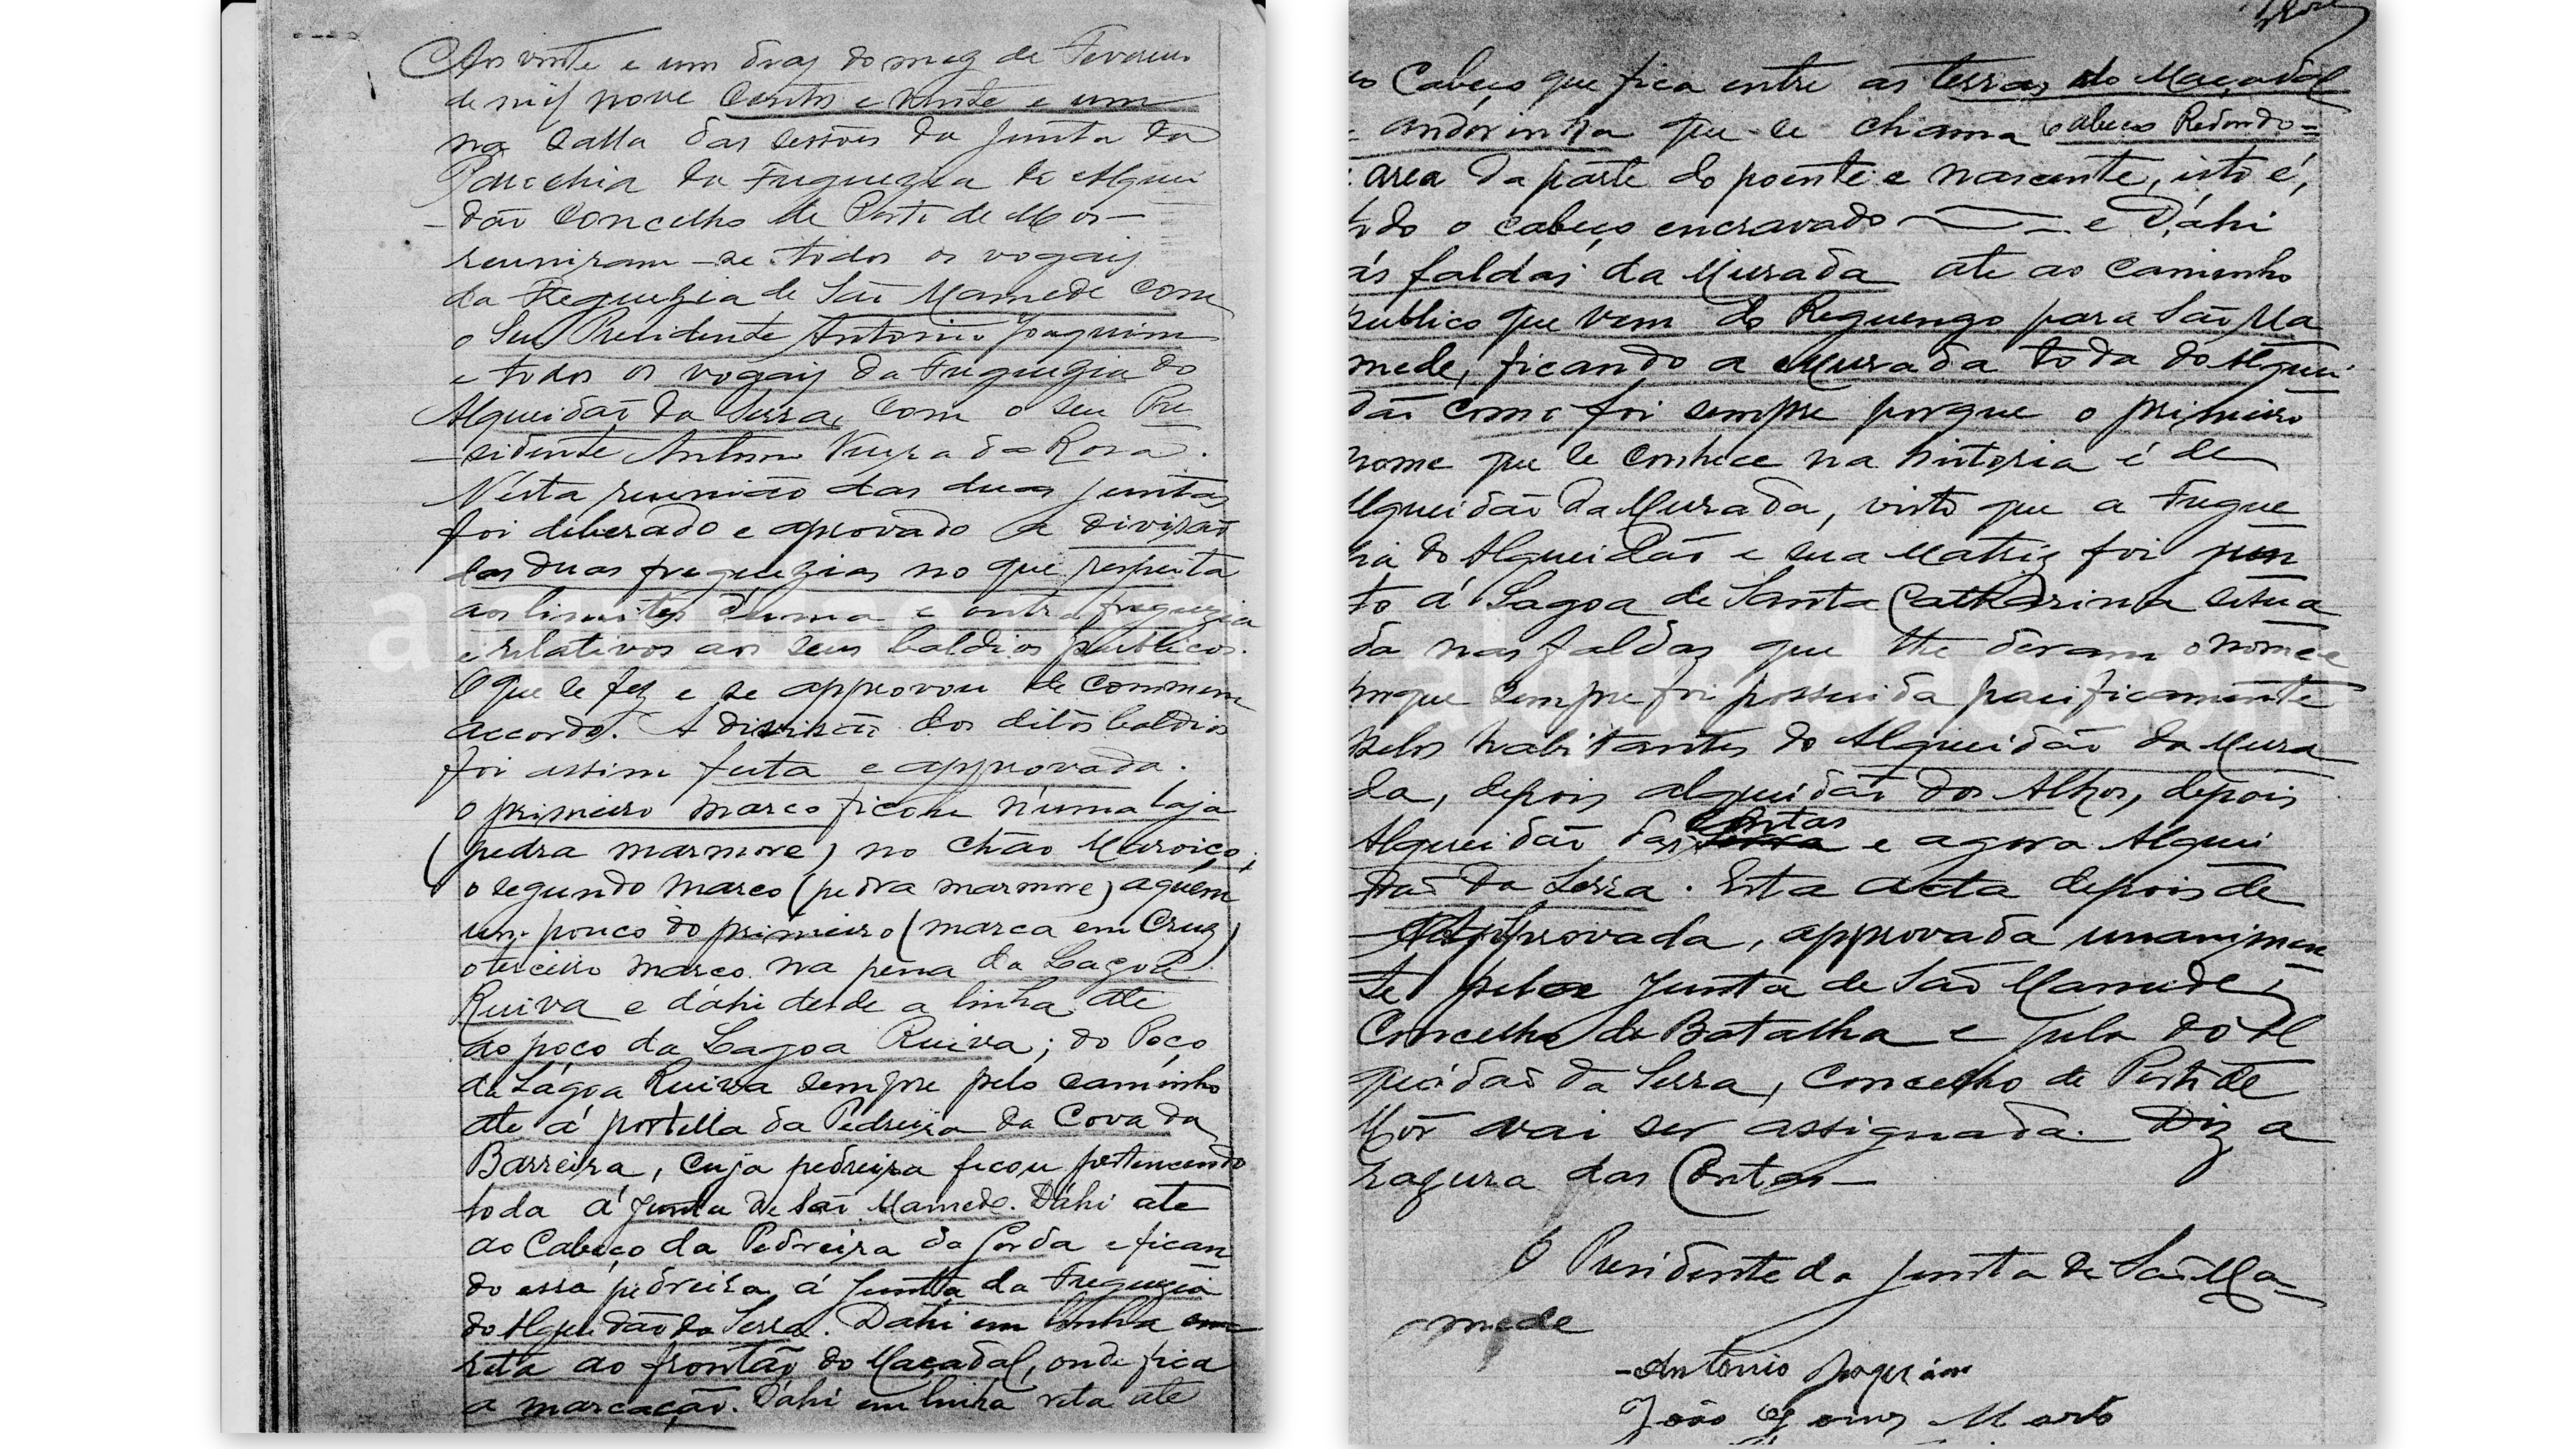 Aos vinte e um dias do mez de Fevereiro
de mil nove centos e vinte e um
na Salla das sessões da Junta da
Parochia da Freguezia de Alquei
-dão Concelho de Porto de Mos-
reuniram-se todos os vogaes
da Freguezia de São Mamede com
o seu Presidente Antonio Joaquim
e todos os vogaes da Freguezia do
Alqueidão da Serra, com o seu Pre
-sidente Antonio Vieira da Rosa.
Nésta reunião das duas juntas
foi deliberado e aprovado a divisão
das duas freguezias no que respeita
aos limites d'uma e outra freguezia
e relativos aos seus baldios publicos.
O que se fez e se approvou de commum
accordo. A divisão dos ditos baldios
foi assim feita e approvada.
o primeiro marco ficou n'uma laja
(pedra marmore) no Chão Muroiço;
o segundo marco (pedra marmore) aquem
um pouco do primeiro (marca em Cruz)
o terceiro marco na pena da Lagoa
Ruiva e dáhi desde a linha até
ao poço da Lagoa Ruiva; do Poço
da Lágoa Ruiva sempre pelo caminho
até á portella da Pedreira da Cova da
Barreira, cuja pedreira ficou pertencendo
toda á Junta de São Mamede. Dáhi até
ao Cabeço da Pedreira da Corda e fican
do essa pedreira á Juntta da Freguezia
do Alqueidão da Serra. Dahi em linha
reta ao frontão do Maçadal, onde fica
a marcação. Dáhi em linha reta até
ao Cabeço que fica entre as terras do Maçadal
e andorinha que se chama Cabeço Redondo=
area da parte do poente e nascente, isto é,
todo o cabeço encravado — e Dáhi
ás faldas da Murada até ao caminho
publico que vem do Reguengo para São Ma
mede, ficando a Murada toda do Alquei
dão como foi sempre porque o primeiro
nome que se conhece na historia é de
Alqueidão da Murada, visto que a Fregue
zia do Alqueidão e sua Matriz foi jun
to á Lagoa de Santa Catharina situa
da nas faldas que lhe deram o nome e
porque sempre foi possuida pacificamente
pelos habitantes do Alqueidão da Mura
da, depois alqueidão dos Alhos, depois
Alqueidão das Contas e agora Alquei
dão da Serra. Esta acta depois de
approvada, approvada unanimen
te pela Junta de São Mamede,
Concelho da Batalha e pela do Al
queidão da Serra, Concelho de Porto de
Mós vai ser assignada. Diz a
rasura das Contas—
O Presidente da Junta de São Ma-
mede
-António Joaquim
João Gomes Marto